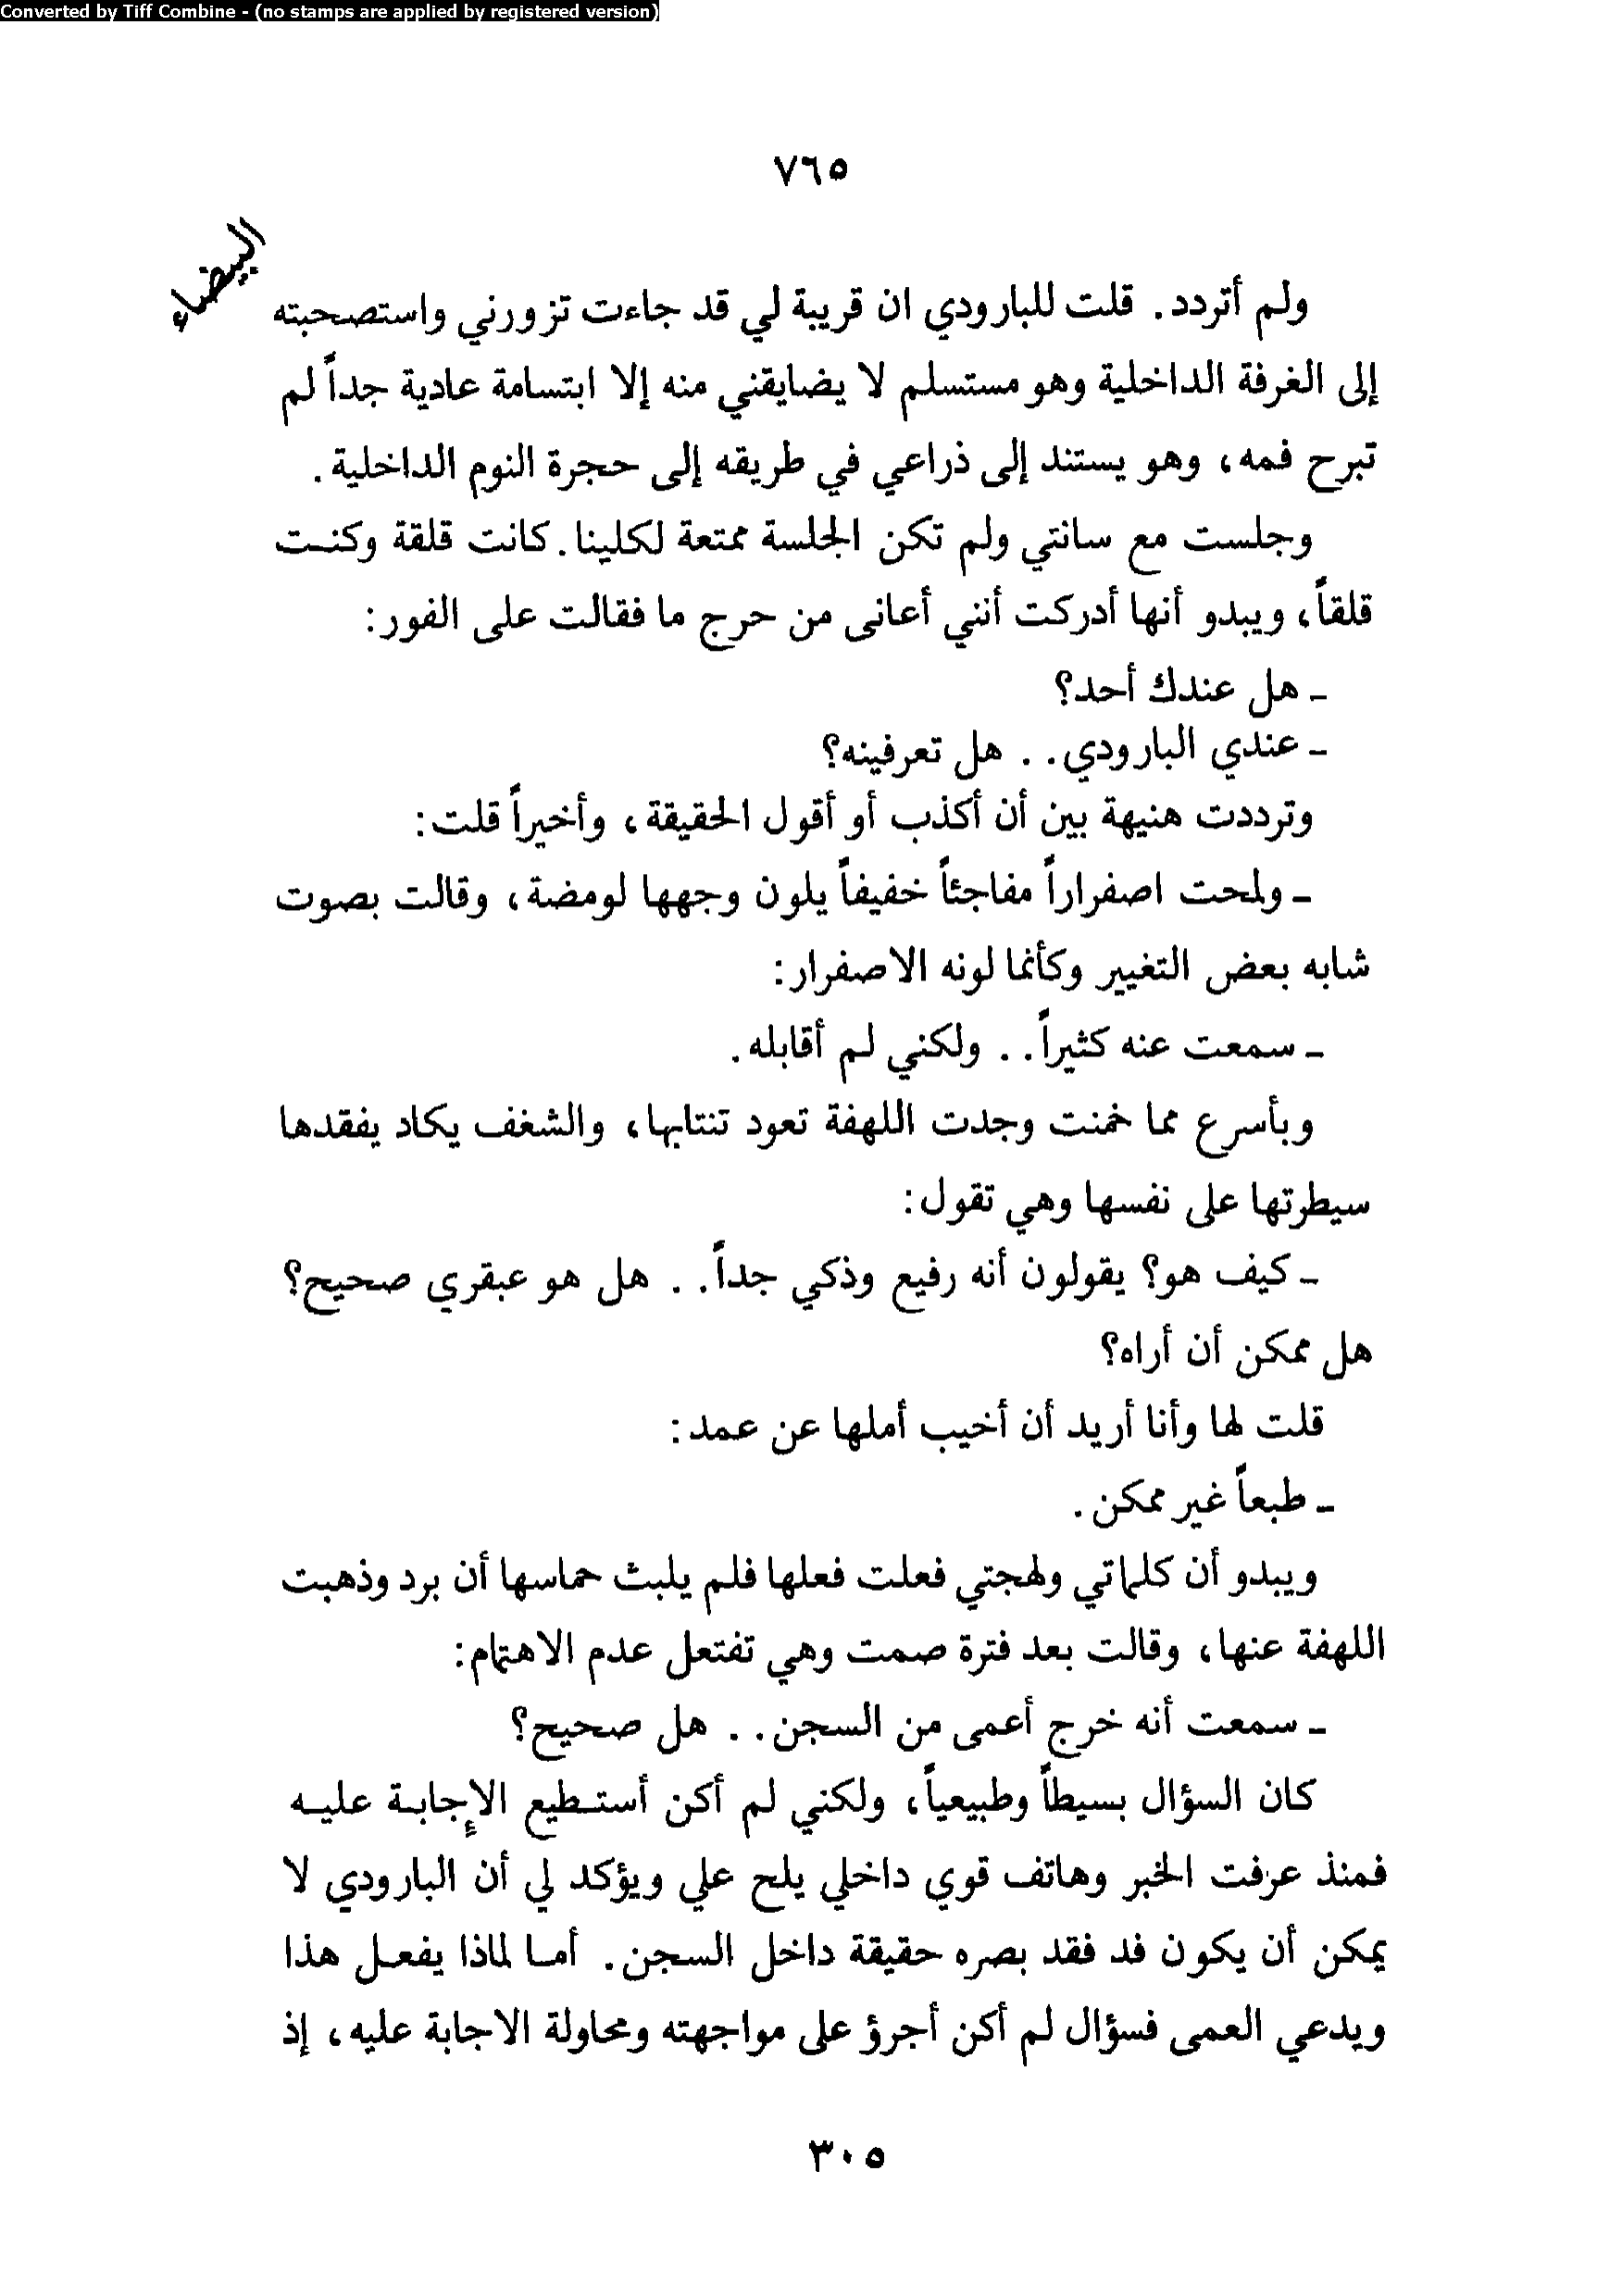 Converted by Tiff Combine - (no stamps are applied by registered version)
٧٦٥
البيضاء
ولم أتردد. قلت للبارودي ان قريبة لي قد جاءت تزورني واستصحبته
إلى الغرفة الداخلية وهو مستسلم لا يضايقني منه إلا ابتسامة عادية جداً لم
تبرح فمه، وهو يستند إلى ذراعي في طريقه إلى حجرة النوم الداخلية.
وجلست مع سانتي ولم تكن الجلسة ممتعة لكلينا. كانت قلقة وكنت
قلقاً، ويبدو أنها أدركت أنني أعانى من حرج ما فقالت على الفور:
ـ هل عندك أحد؟
ـ عندي البارودي. . هل تعرفينه؟
وترددت هنيهة بين أن أكذب أو أقول الحقيقة، وأخيراً قلت:
ـ ولمحت اصفراراً مفاجئاً خفيفاً يلون وجهها لومضة، وقالت بصوت
شابه بعض التغيير وكأنما لونه الاصفرار:
ـ سمعت عنه كثيراً. . ولكني لم أقابله.
وبأسرع مما خمنت وجدت اللهفة تعود تنتابها، والشغف يكاد يفقدها
سيطرتها على نفسها وهي تقول:
ـ كيف هو؟ يقولون أنه رفيع وذكي جداً. . هل هو عبقري صحيح؟
هل ممكن أن أراه؟
قلت لها وأنا أريد أن أخيب أملها عن عمد:
ـ طبعاً غير ممكن.
ويبدو أن كلماتي ولهجتي فعلت فعلها فلم يلبث حماسها أن برد وذهبت
اللهفة عنها، وقالت بعد فترة صمت وهي تفتعل عدم الاهتمام:
ـ سمعت أنه خرج أعمى من السجن. . هل صحيح؟
كان السؤال بسيطاً وطبيعياً، ولكني لم أكن أستطيع الإجابة عليه
فمنذ عرفت الخبر وهاتف قوي داخلي يلح علي ويؤكد لي أن البارودي لا
يمكن أن يكون فد فقد بصره حقيقة داخل السجن. أما لماذا يفعل هذا
ويدعي العمى فسؤال لم أكن أجرؤ على مواجهته ومحاولة الاجابة عليه، إذ
٣٠٥